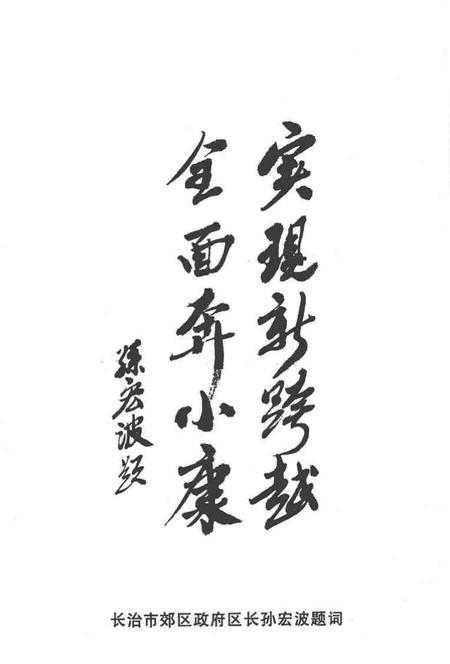 实現新跨越
全面奔小康
孫宏波题
长治市郊区政府区长孙宏波题词